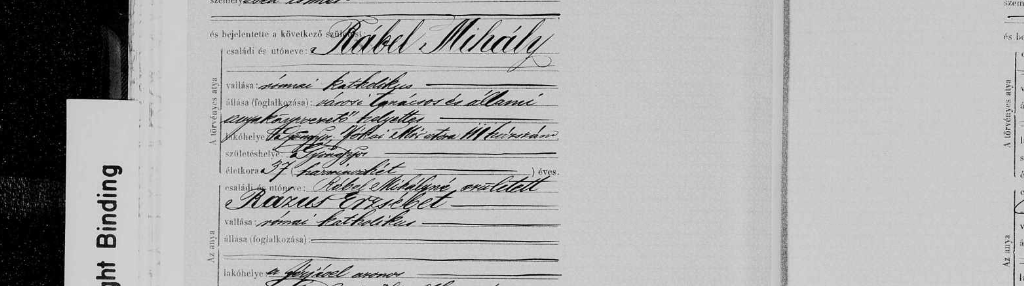 és bejelentette a következő születést
családi és utóneve: Rábel Mihály
A törvényes atya
vallása: római katholikus
állása (foglalkozása): városi tanácsos és állami
anyakönyvvezető helyettes
lakóhelye Gyöngyös, Kókai Mór utca 111 házszám
születéshelye: Gyöngyös
életkora 37 (harminczhét) éves.
családi és utóneve: Rábel Mihályné, született
Rázus Erzsébet
vallása: római katholikus
Az anya
állása (foglalkozása):
lakóhelye a férjével azonos
ght Binding
és be
A törvényes atya
Az anya